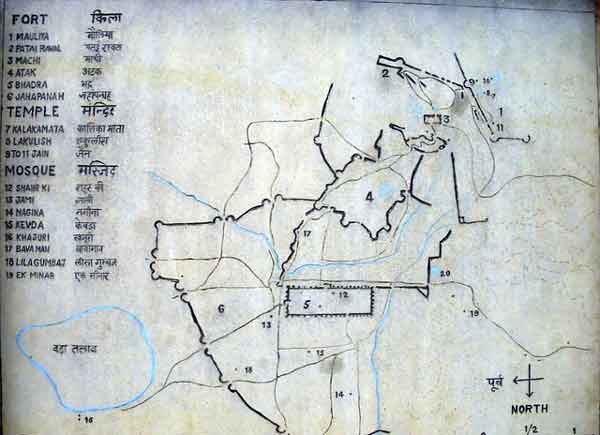 FORT किला
1 MAULIYA मौलिया
2 PATAI RAWAL पताई रावल
3 MACHI माची
4 ATAK अटक
5 BHADRA भद्र
6 JAHAPANAH
TEMPLE मन्दिर
7 KALAKAMATA कालिका माता
8 LAKULISH लकुलीस
9 TO 11 JAIN जैन
MOSQUE मस्जिद
12 SHAHR KI शहर की
13 JAMI जामी
14 NAGINA नगीना
15 KEVDA केवड़ा
16 KHAJURI खजुरी
17 BAVAMAN बावामान
18 LILAGUMBAJ लीला गुम्बज
19 EK MINAR एक मीनार
2
9
16
8
7
1
1
3
11
4
17
20
12
5
6
13
19
15
18
14
बड़ा तलाव
16
पूर्व
NORTH
1/2
1